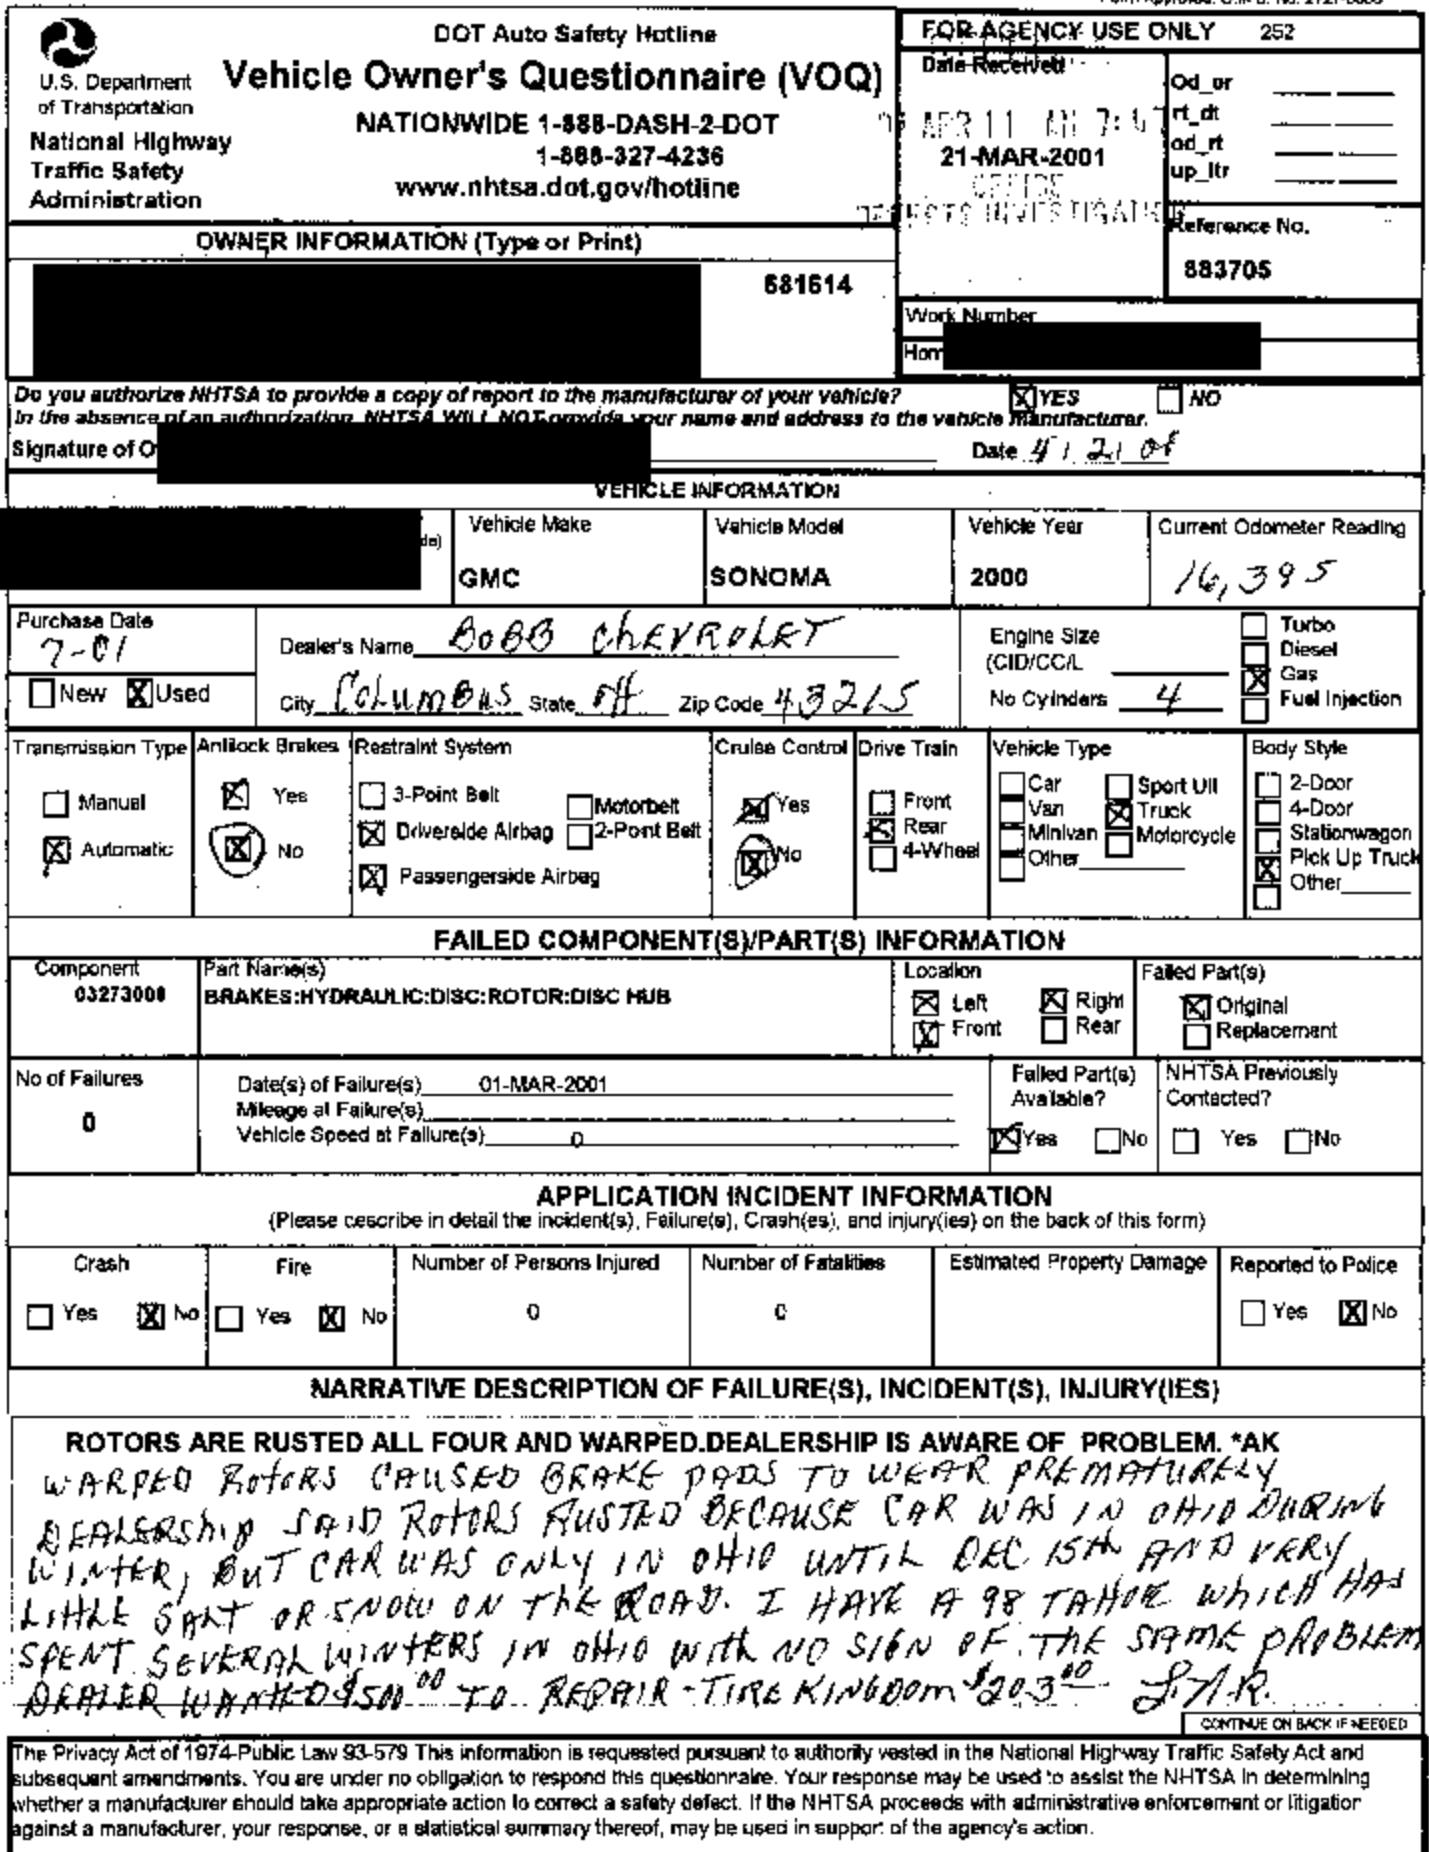 DOT Auto Safety Hotline
Vehicle Owner's Questionnaire (VOQ)
NATIONWIDE 1-888-DASH-2-DOT
1-888-327-4236
www.nhtsa.dot.gov/hotline
U.S. Department
of Transportation
National Highway
Traffic Safety
Administration
FOR AGENCY USE ONLY 252
Date Received
APR 11 AM
21-MAR-2001
OFFICE
DEFECTS INVESTIGATION
Od_or
rt_dt
od_rt
up_ltr
Reference No.
883705
OWNER INFORMATION (Type or Print)
681614
Work Number
Do you authorize NHTSA to provide a copy of report to the manufacturer of your vehicle? YES NO
In the absence of an authorization, NHTSA WILL NOT provide your name and address to the vehicle manufacturer.
Signature of Date 4/2/01
VEHICLE INFORMATION
Vehicle Make
GMC
Vehicle Model
SONOMA
Vehicle Year
2000
Current Odometer Reading
16,395
Purchase Date
7-01
New Used
Dealer's Name BOBB CHEVROLET
City COLUMBUS State OH Zip Code 43215
Engine Size
(CID/CC/L
No Cylinders 4
Turbo
Diesel
Gas
Fuel Injection
Transmission Type
Manual
Automatic
Antilock Brakes
Yes
No
Restraint System
3-Point Belt
Motorbelt
Driverside Airbag
2-Point Belt
Passengerside Airbag
Cruise Control
Yes
No
Drive Train
Front
Rear
4-Wheel
Vehicle Type
Car
Van
Minivan
Other
Sport Util
Truck
Motorcycle
Body Style
2-Door
4-Door
Stationwagon
Pick Up Truck
Other
FAILED COMPONENT(S)/PART(S) INFORMATION
Component
03273000
Part Name(s)
BRAKES:HYDRAULIC:DISC:ROTOR:DISC HUB
Location
Left Right
Front Rear
Failed Part(s)
Original
Replacement
No of Failures
0
Date(s) of Failure(s) 01-MAR-2001
Mileage at Failure(s)
Vehicle Speed at Failure(s) 0
Failed Part(s)
Available?
Yes No
NHTSA Previously
Contacted?
Yes No
APPLICATION INCIDENT INFORMATION
(Please describe in detail the incident(s), Failure(s), Crash(es), and injury(ies) on the back of this form)
Crash
Yes No
Fire
Yes No
Number of Persons Injured
0
Number of Fatalities
0
Estimated Property Damage
Reported to Police
Yes No
NARRATIVE DESCRIPTION OF FAILURE(S), INCIDENT(S), INJURY(IES)
ROTORS ARE RUSTED ALL FOUR AND WARPED.DEALERSHIP IS AWARE OF PROBLEM. *AK
WARPED ROTORS CAUSED BRAKE PADS TO WEAR PREMATURELY
DEALERSHIP SAID ROTORS RUSTED BECAUSE CAR WAS IN OHIO DURING
WINTER, BUT CAR WAS ONLY IN OHIO UNTIL DEC 15th AND VERY
LITTLE SALT OR SNOW ON THE ROAD. I HAVE A 98 TAHOE WHICH HAS
SPENT SEVERAL WINTERS IN OHIO WITH NO SIGN OF THE SAME PROBLEM
DEALER WANTED $500.00 TO REPAIR - TIRE KINGDOM $203.00
CONTINUE ON BACK IF NEEDED
The Privacy Act of 1974-Public Law 93-579 This information is requested pursuant to authority vested in the National Highway Traffic Safety Act and
subsequent amendments. You are under no obligation to respond this questionnaire. Your response may be used to assist the NHTSA in determining
whether a manufacturer should take appropriate action to correct a safety defect. If the NHTSA proceeds with administrative enforcement or litigation
against a manufacturer, your response, or a statistical summary thereof, may be used in support of the agency's action.